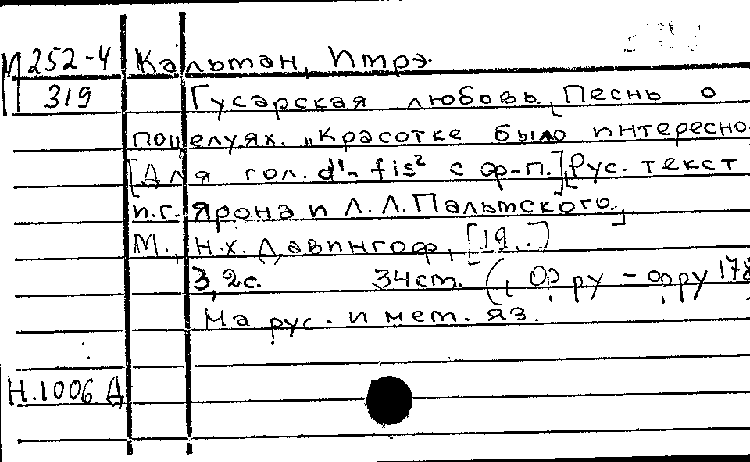 М 252-4 Кальман, Имрэ.
319 Гусарская любовь. [Песнь о
поцелуях. „Красотке было интересно
[Для гол. d¹- fis² с ф-п.] [Рус. текст
п.г. Ярона и Л.Л. Пальмского.]
М., н.х. Давингоф, [19..]
3, 2с. 34см. („ Фру - фру 178
На рус. и нем. яз.
Н.1006 Д